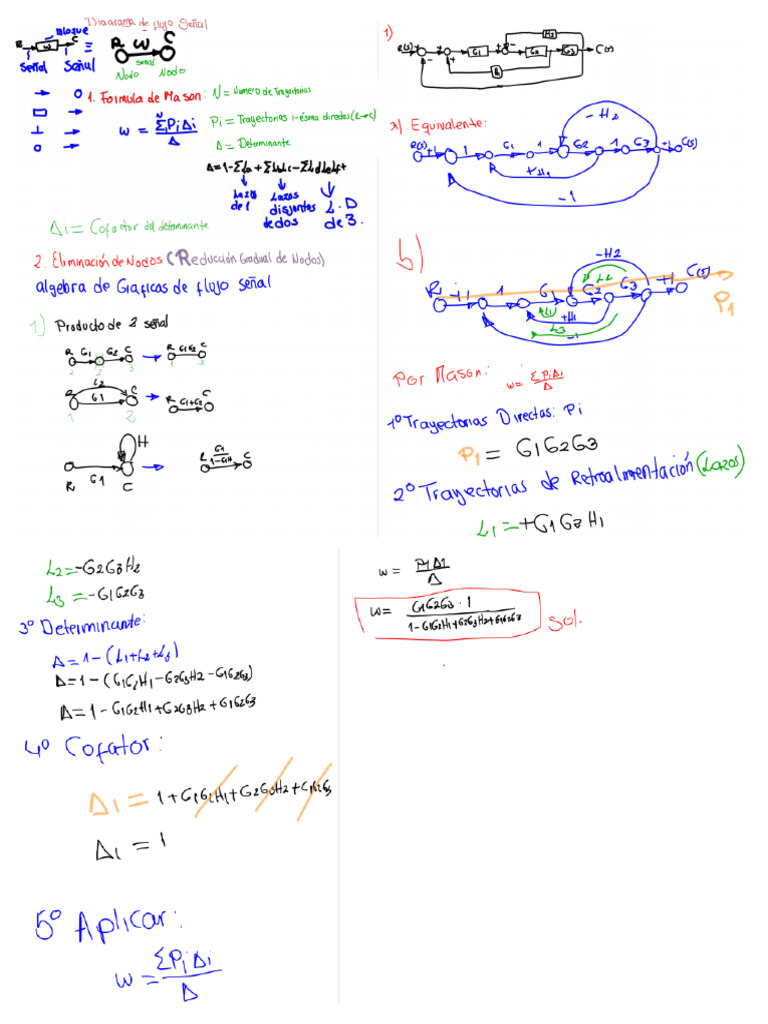 Diagrama de flujo Señal
Bloque
R w C ≡ R w C
Señal Señal
señal
Nodo Nodo
1. Formula de Mason:
N = Numero de Trayectorias
w = Σ Pi Δi / Δ
N
Pi = Trayectorias i-ésma directas (R→C)
Δ = Determinante
Δ = 1 - ΣLa + ΣLbLc - ΣLdLeLf +
Lazos de 1
Lazos disjontes de dos
L.D de 3.
Δ1 = Cofactor del determinante
2. Eliminación de Nodos (Reducción Gradual de Nodos)
algebra de Graficas de flujo señal
1) Producto de 2 señal
R G1 G2 C → R G1G2 C
1 2 3 1 3
R G2 C
G1 → R G1+G2 C
1 2
H
R G1 C → R G1/1-G1H C
1)
R(s) + - + + + - G1 G2 G3 C(s)
H2
H1
a) Equivalente:
-H2
R(s) +1 1 G1 1 G2 1 G3 +1 C(s)
+H1
-1
b)
-H2
L2
R +1 1 G1 G2 G3 +1 C(s)
P1
L1 +H1
L3
-1
Por Mason: w = ΣPiΔi / Δ
1º Trayectorias Directas: Pi
P1 = G1G2G3
2º Trayectorias de Retroalimentación (Lazos)
L1 = +G1G3H1
L2 = -G2G3H2
L3 = -G1G2G3
3º Determinante:
Δ = 1 - (L1+L2+L3)
Δ = 1 - (G1G2H1 - G2G3H2 - G1G2G3)
Δ = 1 - G1G2H1 + G2G3H2 + G1G2G3
4º Cofator:
Δ1 = 1 + G1G2H1 + G2G3H2 + G1G2G3
Δ1 = 1
5º Aplicar:
w = ΣPiΔi / Δ
w = P1Δ1 / Δ
w = G1G2G3 · 1 / 1 - G1G2H1 + G2G3H2 + G1G2G3
Sol.